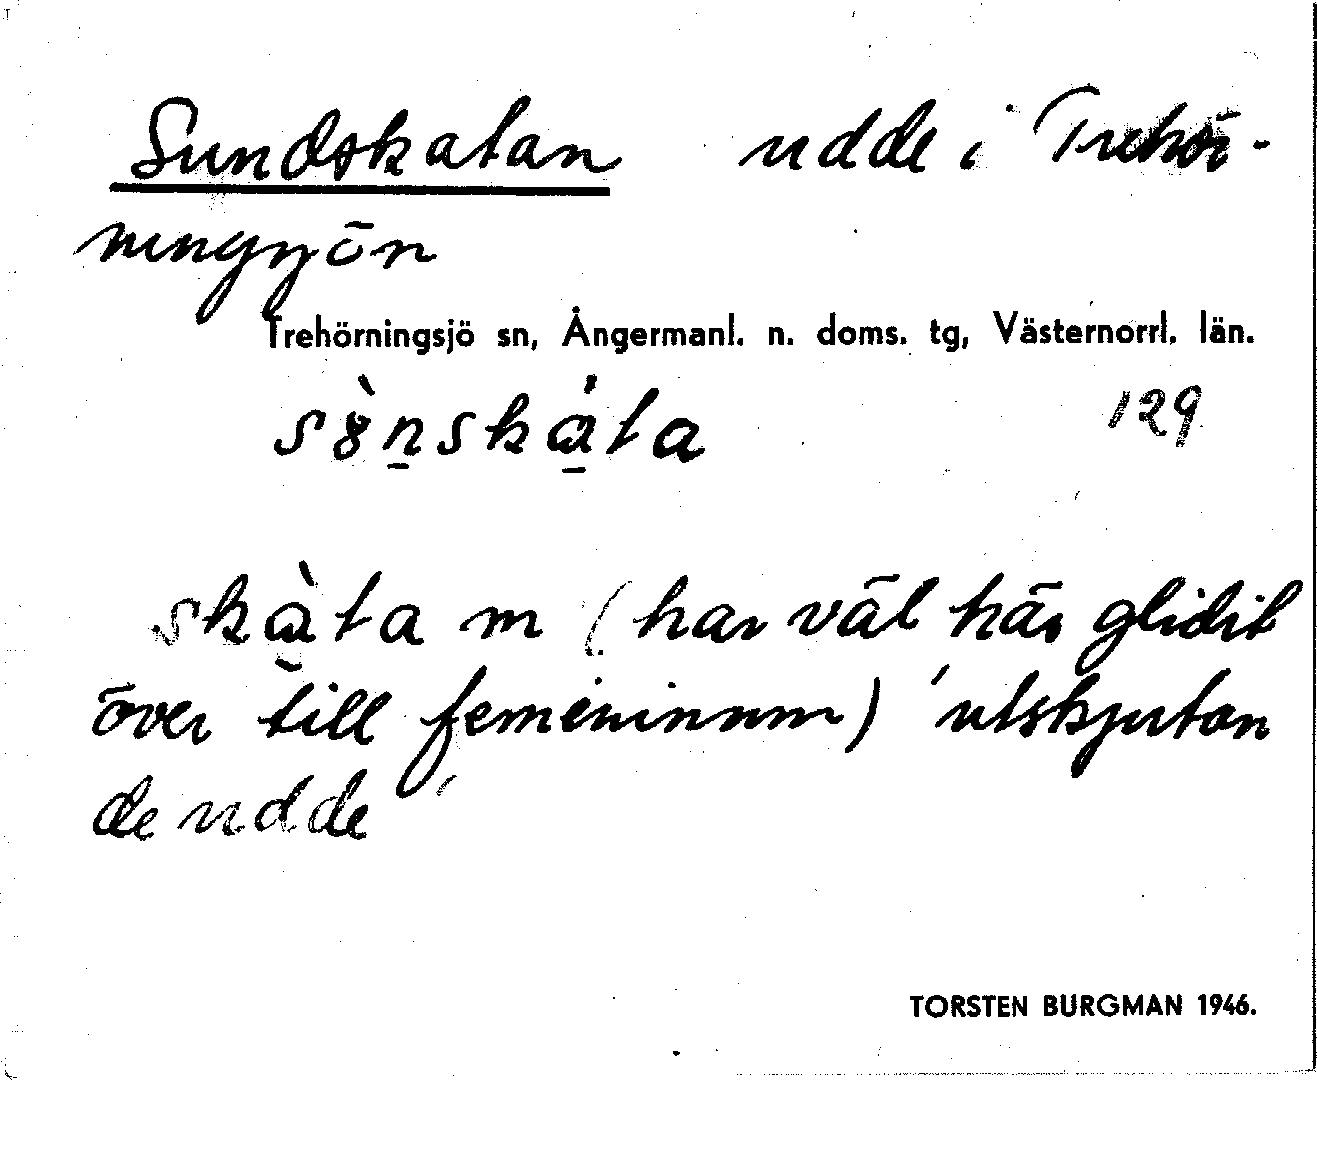 Sundskatan udde i Trehör-
ningsjön
Trehörningsjö sn, Ångermanl. n. doms. tg, Västernorrl. län.
129
skàta m (har väl här glidit
över till femininum) 'utskjutan
de udde'
TORSTEN BURGMAN 1946.